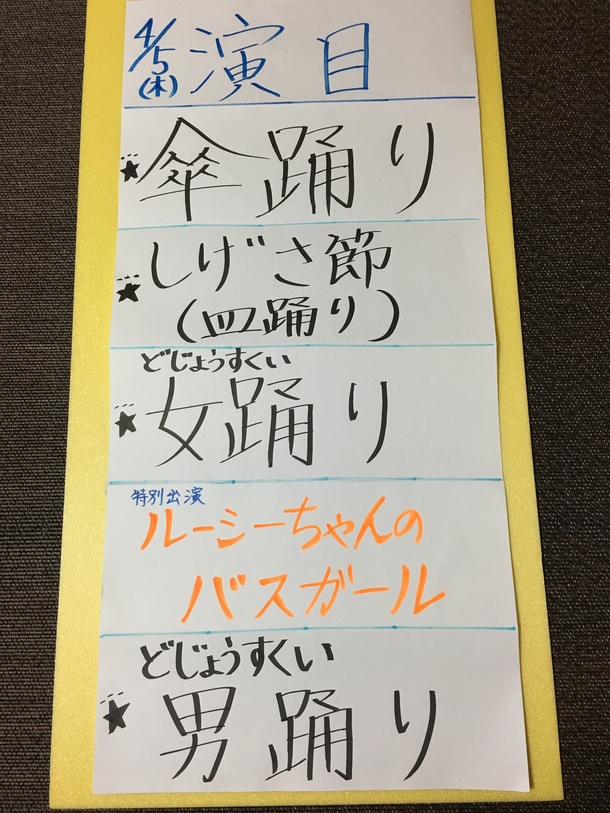 4/5(木) 演目
★傘踊り
★しげさ節
(皿踊り)
どじょうすくい
★女踊り
特別出演
ルーシーちゃんの
バスガール
どじょうすくい
★男踊り